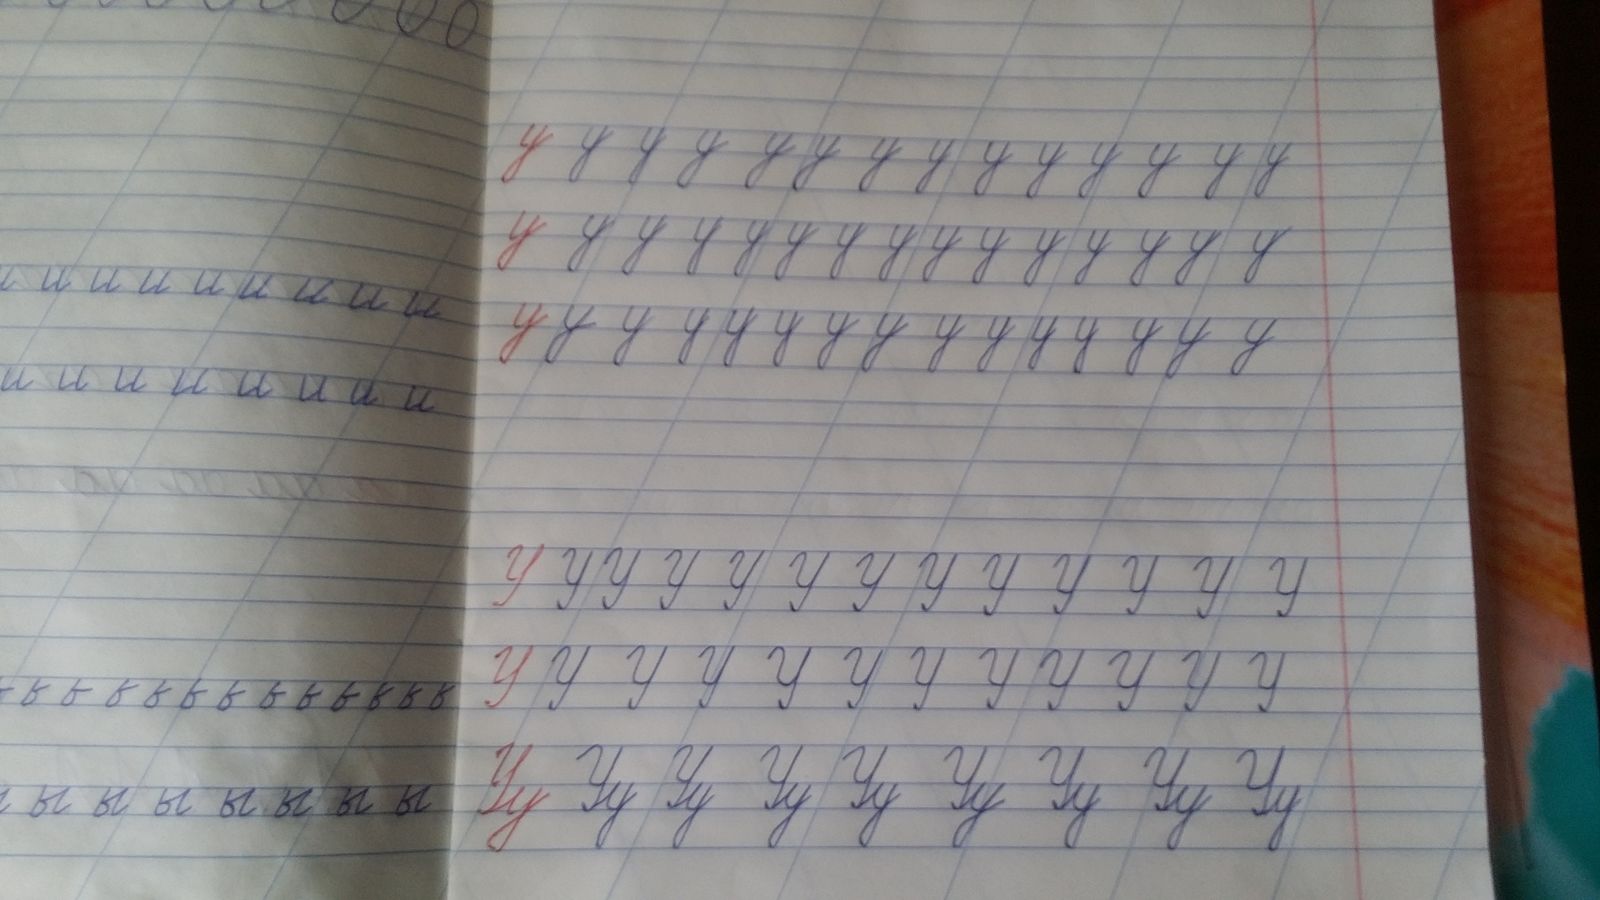 О О О
и и и и и и и и и
и и и и и и и и
ь ь ь ь ь ь ь ь ь ь ь ь ь
ы ы ы ы ы ы ы ы
у у у у у у у у у у у у у у
у у у у у у у у у у у у у у у
у у у у у у у у у у у у у у у
У У У У У У У У У У У У У
У У У У У У У У У У У У
Уу Уу Уу Уу Уу Уу Уу Уу Уу